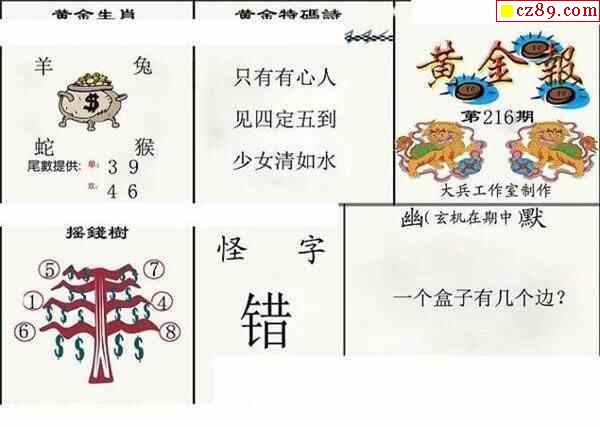 cz89.com
黄金生肖
羊 兔
蛇 猴
尾數提供: 单: 3 9
双: 4 6
黄金特碼詩
只有有心人
见四定五到
少女清如水
黄金報
第216期
大兵工作室制作
摇錢樹
⑤ ⑦
① ④
⑥ ⑧
怪 字
错
幽(玄机在期中)默
一个盒子有几个边?